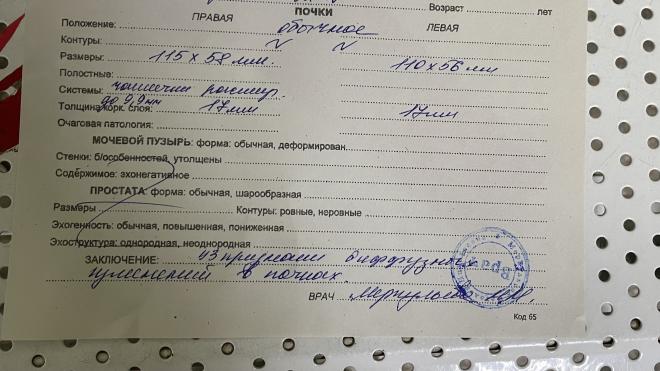 Возраст ........ лет
ПОЧКИ
ПРАВАЯ ЛЕВАЯ
Положение: обычное
Контуры: N N
Размеры: 115 х 58 мм. 110 х 56 мм
Полостные
Системы: чашечки расшир.
до 9,9 мм
Толщина корк. слоя: 17 мм 17 мм
Очаговая патология:
МОЧЕВОЙ ПУЗЫРЬ: форма: обычная, деформирован
Стенки: б/особенностей, утолщены
Содержимое: эхонегативное
ПРОСТАТА форма: обычная, шарообразная
Размеры Контуры: ровные, неровные
Эхогенность: обычная, повышенная, пониженная
Эхоструктура: однородная, неоднородная
ЗАКЛЮЧЕНИЕ: УЗ признаки диффузных
изменений в почках.
ВРАЧ
Врач
Код 65